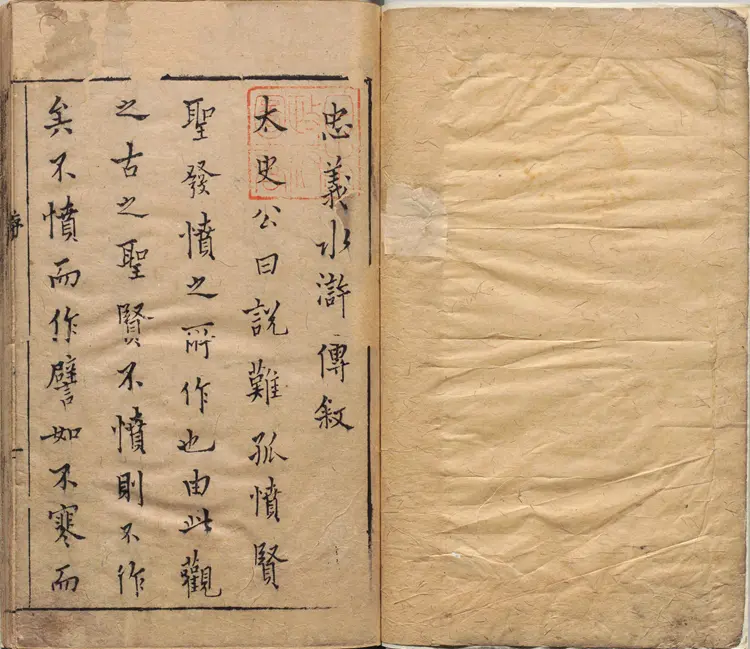 忠義水滸傳敘
太史公曰說難孤憤賢
聖發憤之所作也由此觀
之古之聖賢不憤則不作
矣不憤而作譬如不寒而